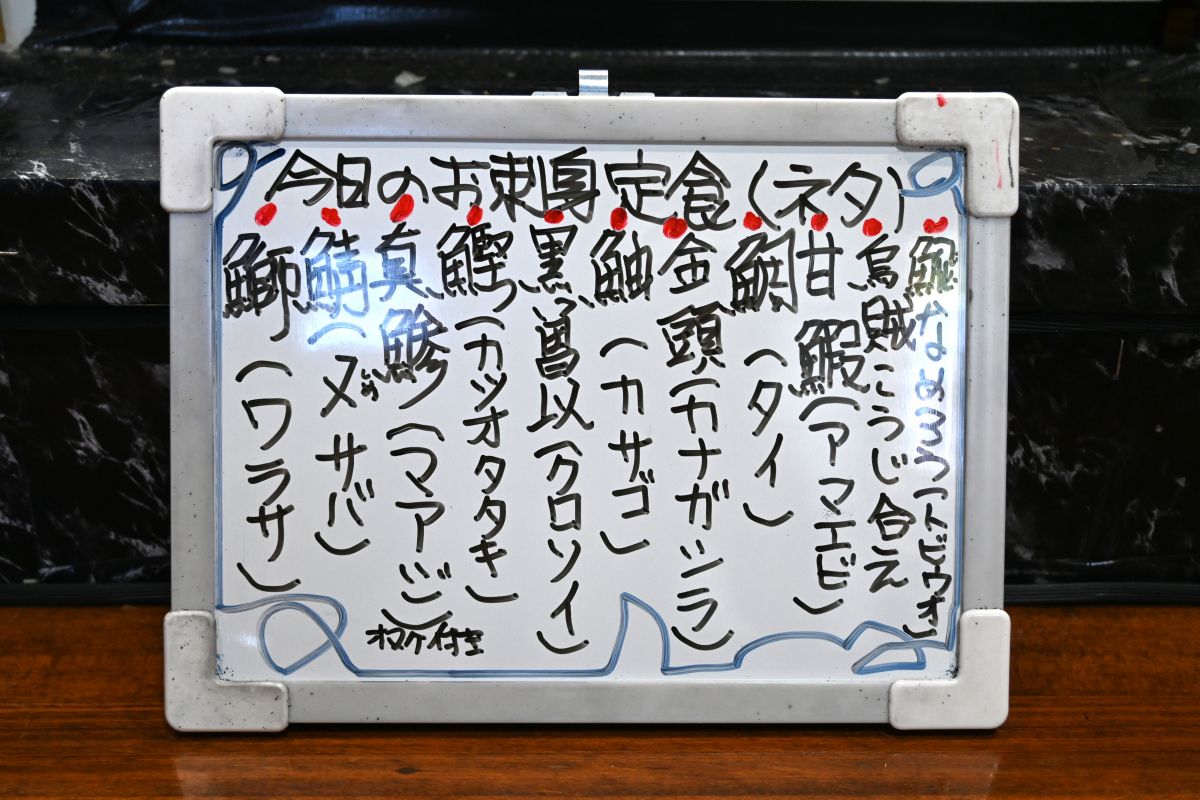 今日のお刺身定食(ネタ)
なめろう(トビウオ)
烏賊こうじ合え
甘鰕(アマエビ)
鯛(タイ)
金頭(カナガシラ)
鮋(カサゴ)
黒曽以(クロソイ)
鰹(カツオタタキ)
真鯵(マアジ)
オマケ付き
鯖(〆サバ)
鰤(ワラサ)